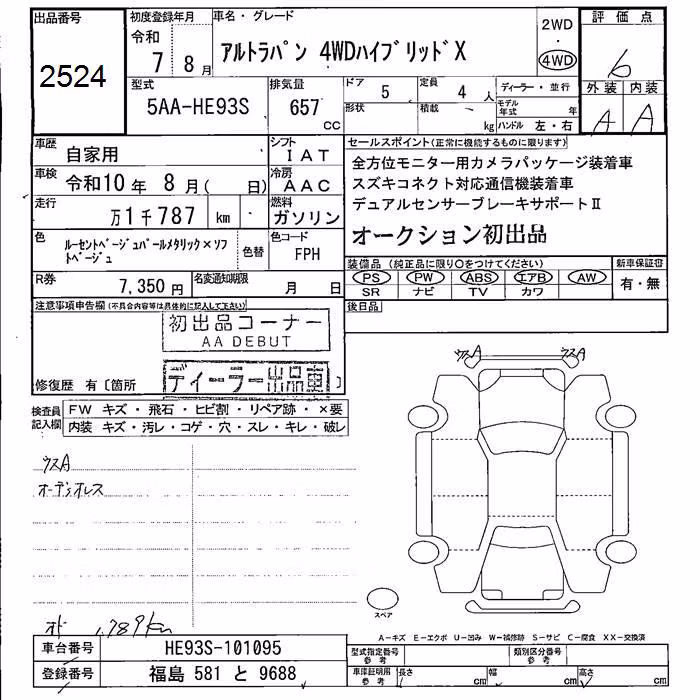 出品番号
2524
初度登録年月
令和
7年 8月
車名・グレード
アルトラパン 4WDハイブリッドX
2WD
・
4WD
評価点
6
外装 内装
A A
型式
5AA-HE93S
排気量
657
cc
ドア
5
定員
4人
ディーラー・並行
形状
積載
kg
モデル年式 年
ハンドル 左・右
車歴
自家用
シフト
IAT
車検
令和10年 8月( 日)
冷房
AAC
走行
万1千787 km
燃料
ガソリン
色
ルーセントベージュパールメタリック×ソフトベージュ
色替
色コード
FPH
R券
7,350円
名変通知期限
月 日
セールスポイント(正常に機能するものに限ります)
全方位モニター用カメラパッケージ装着車
スズキコネクト対応通信機装着車
デュアルセンサーブレーキサポートⅡ
オークション初出品
装備品(純正品に限り○をつけてください)
PS PW ABS エアB AW
SR ナビ TV カワ
新車保証書
有・無
後日品
注意事項申告欄(不具合内容等は具体的に記入して下さい)
初出品コーナー
AA DEBUT
ディーラー出品車
修復歴 有〔箇所 〕
検査員記入欄
FW キズ・飛石・ヒビ割・リペア跡・×要
内装 キズ・汚レ・コゲ・穴・スレ・キレ・破レ
ウスA
オーディオレス
ウスA ウスA
スペア
オド 1,789km
A-キズ E-エクボ U-凹み W-補修跡 S-サビ C-腐食 XX-交換済
車台番号
HE93S-101095
登録番号
福島 581 と 9688
型式指定番号
参考
類別区分番号
参考
車庫証明用
参考
長さ cm
幅 cm
高さ cm